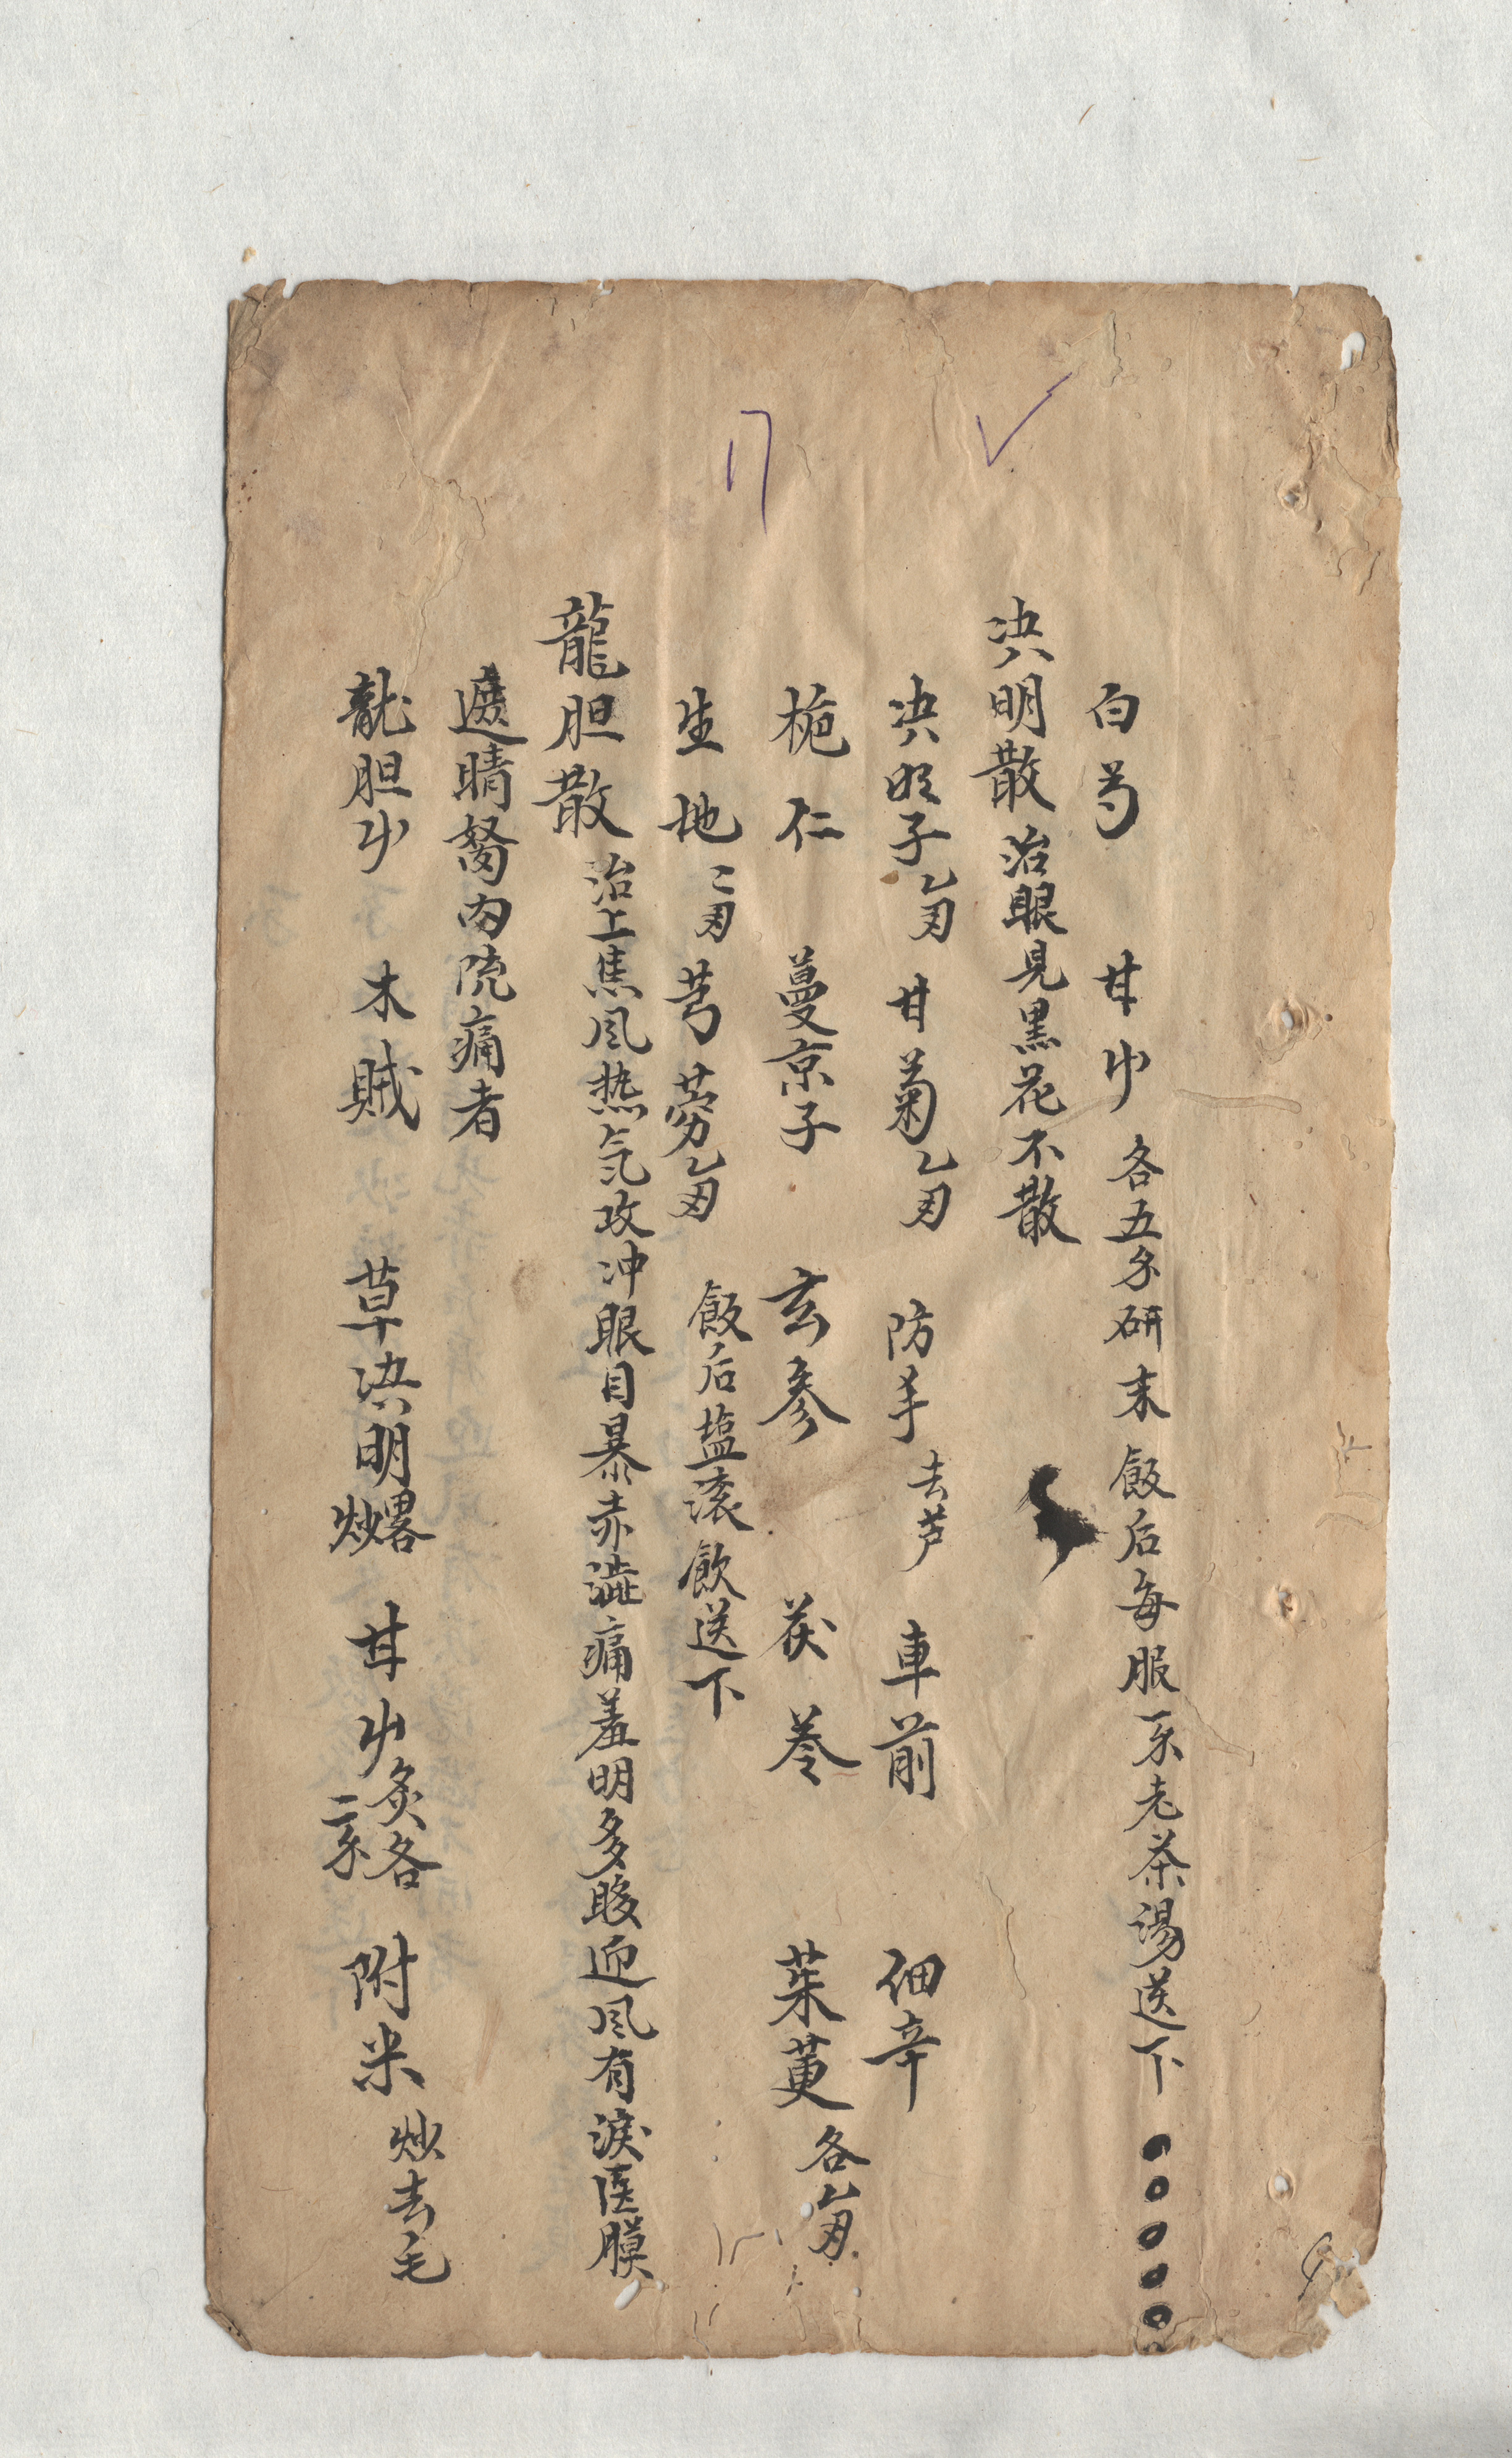 白芍 甘屮 各五分研末飯后每服一下老茶湯送下
決明散治眼見黑花不散
決明子乙両 甘菊乙両 防丰去芦 車前 细辛
栀仁 蔓京子 玄參 茯苓 茱萸各乙両
生地二両 芎藭乙両 飯后塩滚飲送下
龍胆散治上焦风热氣攻冲眼目暴赤澁痛羞明多眵迎风有淚医膜
遮睛胬肉痛者
龍胆屮 木賊 草決明畧炒 甘屮炙各二 附米炒去毛
17